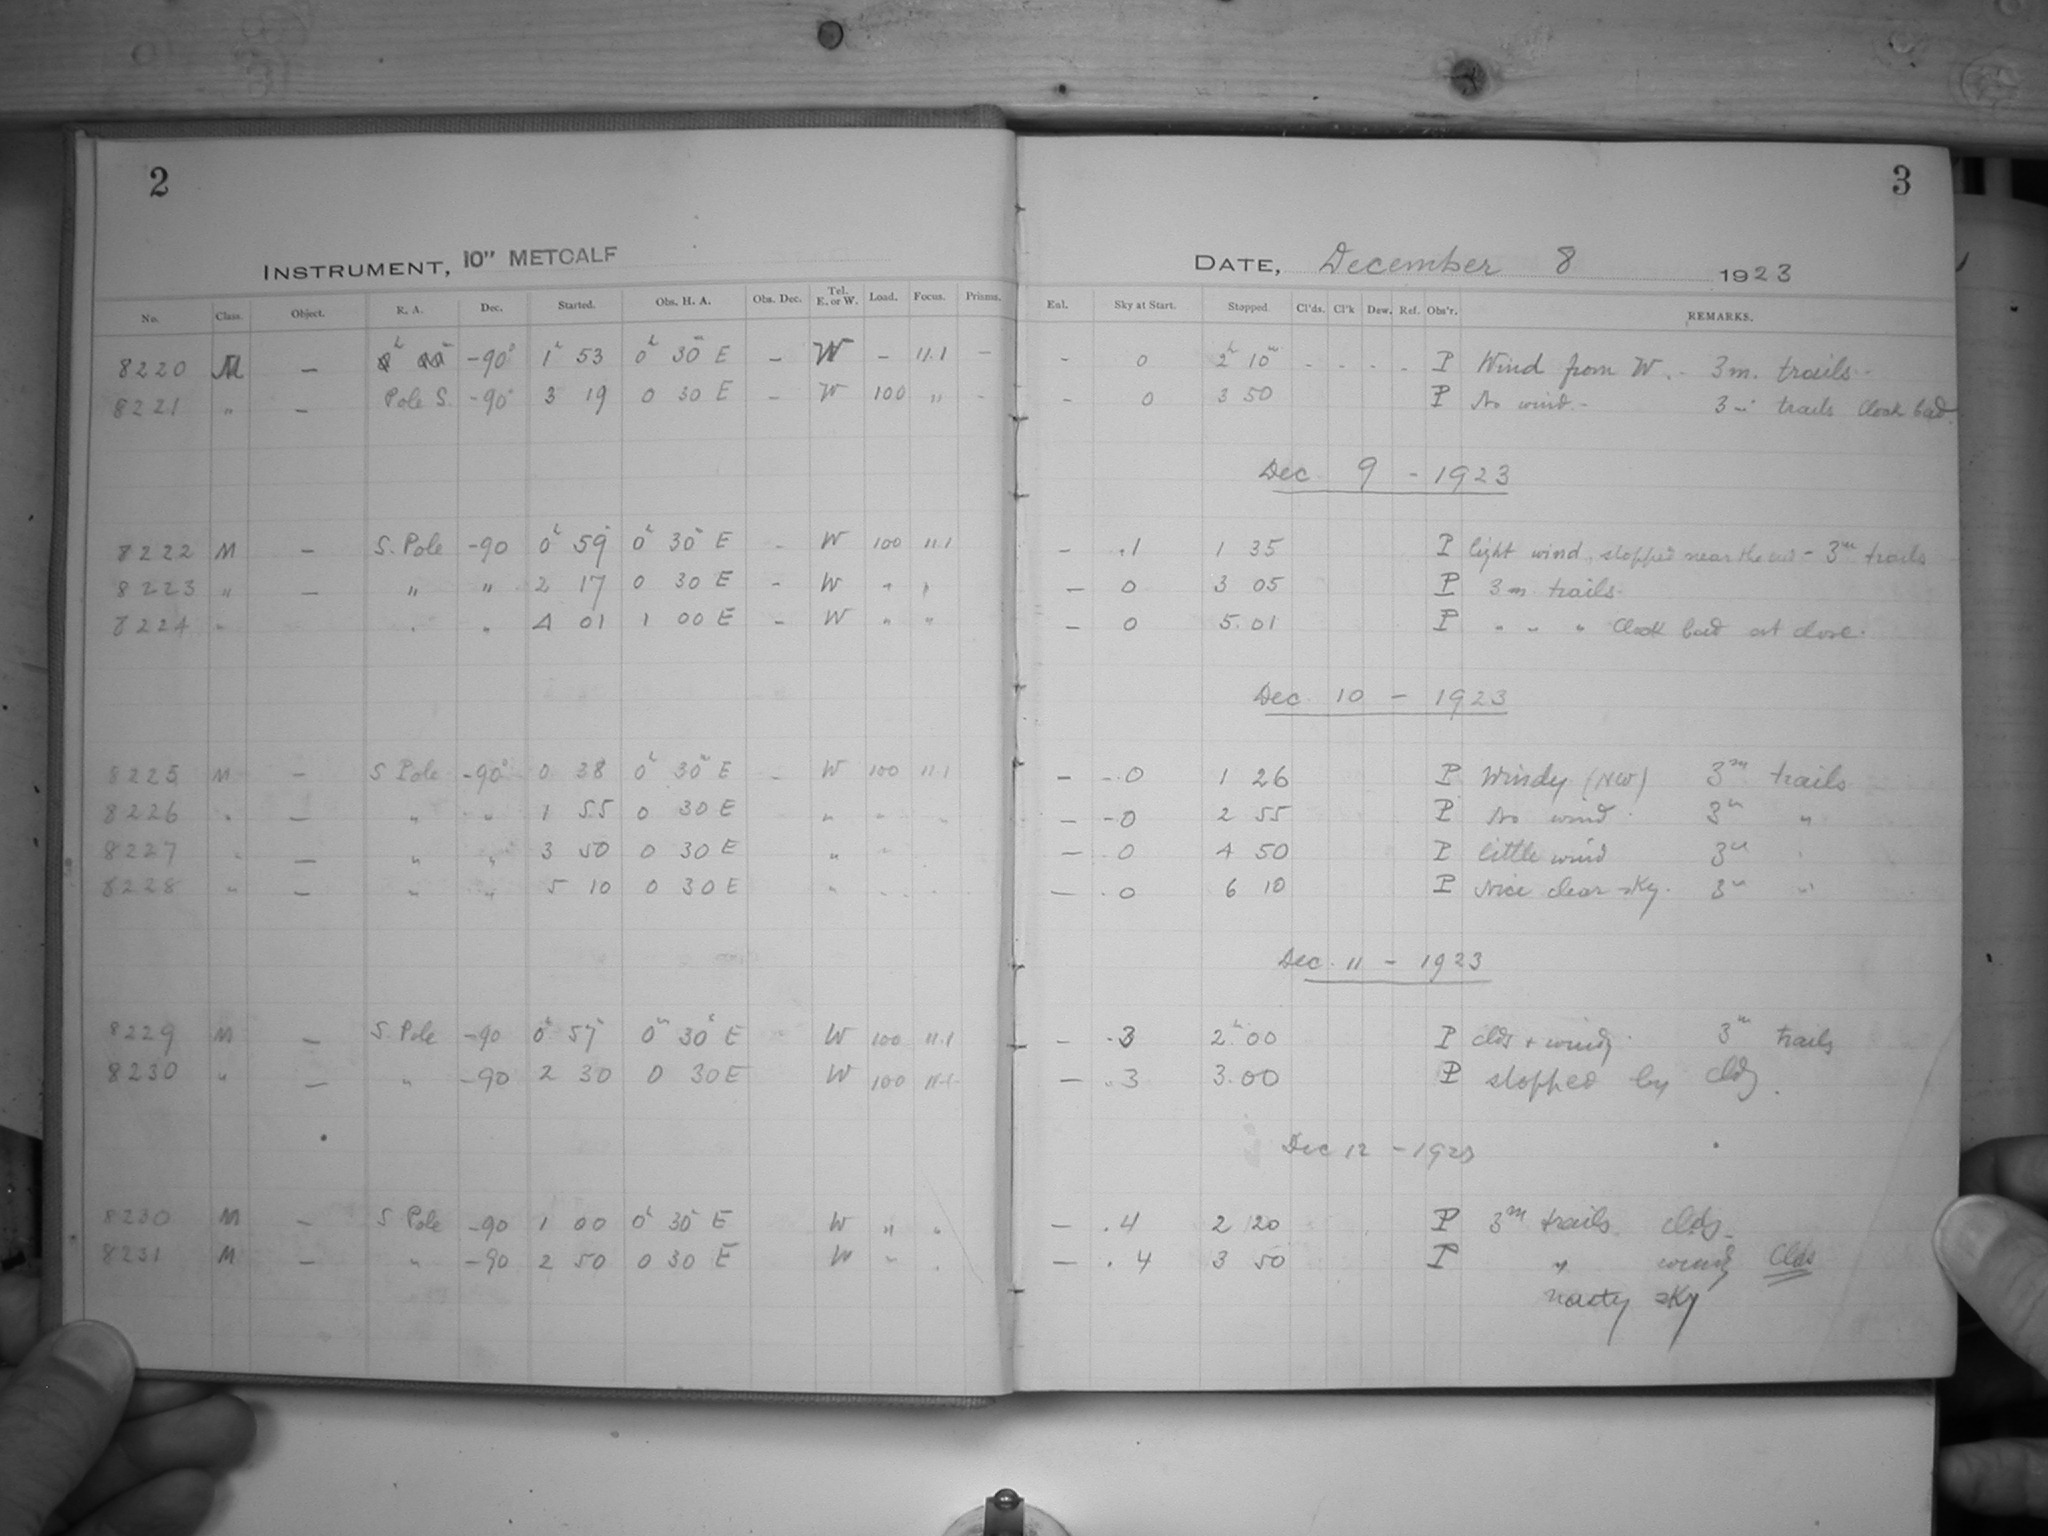 2
3
INSTRUMENT, 10" METCALF
DATE, December 8 1923
No. Class. Object. R. A. Dec. Started. Obs. H. A. Obs. Dec. Tel. E. or W. Load. Focus. Prisms. Enl. Sky at Start. Stopped Cl'ds. Cl'k Dew. Ref. Obs'r. REMARKS.
8220 M — -90° 1h 53 0h 30m E — W — 11.1 — - 0 2h 10m - - - - P Wind from W. - 3m. trails -
8221 " — Pole S. -90° 3 19 0 30 E — W 100 " - - 0 3 50 P No wind. - 3m trails Clock bad
Dec. 9 - 1923
8222 M — S. Pole -90 0h 59 0h 30m E - W 100 11.1 — .1 1 35 P light wind, stopped near the end - 3m trails
8223 " — " " 2 17 0 30 E - W " " — 0 3 05 P 3m trails
8224 " " " 4 01 1 00 E - W " " — 0 5.01 P " " " Clock bad at close.
Dec. 10 - 1923
8225 M — S Pole -90° 0 38 0h 30m E - W 100 11.1 — - 0 1 26 P Windy (NW) 3m trails
8226 " — " " 1 55 0 30 E " " " — - 0 2 55 P No wind. 3m "
8227 " — " " 3 50 0 30 E " " — 0 4 50 P little wind 3m "
8228 " — " " 5 10 0 30 E " " " — . 0 6 10 P Nice clear sky. 3m "
Dec. 11 - 1923
8229 M — S. Pole -90 0h 57 0h 30m E W 100 11.1 — .3 2h 00 P clds + windy. 3m trails
8230 " — " -90 2 30 0 30 E W 100 11.1 — .3 3.00 P stopped by cldy.
Dec 12 - 1923
8230 M — S Pole -90 1 00 0h 30m E W " " — .4 2 20 P 3m trails cldy
8231 M — " -90 2 50 0 30 E W " " — .4 3 50 P " windy Clds
nasty sky